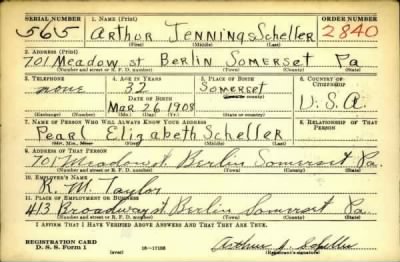 SERIAL NUMBER 1. NAME (Print) ORDER NUMBER
565 Arthur Jennings Scheller 2840
(First) (Middle) (Last)
2. ADDRESS (Print)
701 Meadow st Berlin Somerset Pa
(Number and street or R. F. D. number) (Town) (County) (State)
3. TELEPHONE 4. AGE IN YEARS 5. PLACE OF BIRTH 6. COUNTRY OF CITIZENSHIP
none 32 Somerset
DATE OF BIRTH (Town or county) U.S.A.
Mar 26 1908
(Exchange) (Number) (Mo.) (Day) (Yr.) (State or country)
7. NAME OF PERSON WHO WILL ALWAYS KNOW YOUR ADDRESS 8. RELATIONSHIP OF THAT PERSON
Pearl Elizabeth Scheller
(Mr., Mrs., Miss) (First) (Middle) (Last)
9. ADDRESS OF THAT PERSON
701 Meadow st. Berlin Somerset Pa.
(Number and street or R. F. D. number) (Town) (County) (State)
10. EMPLOYER'S NAME
R. M. Taylor
11. PLACE OF EMPLOYMENT OR BUSINESS
413 Broadway st. Berlin Somerset Pa.
(Number and street or R. F. D. number) (Town) (County) (State)
I AFFIRM THAT I HAVE VERIFIED ABOVE ANSWERS AND THAT THEY ARE TRUE.
REGISTRATION CARD
D. S. S. Form 1 (over) 16—17105 Arthur J. Scheller
(Registrant's signature)